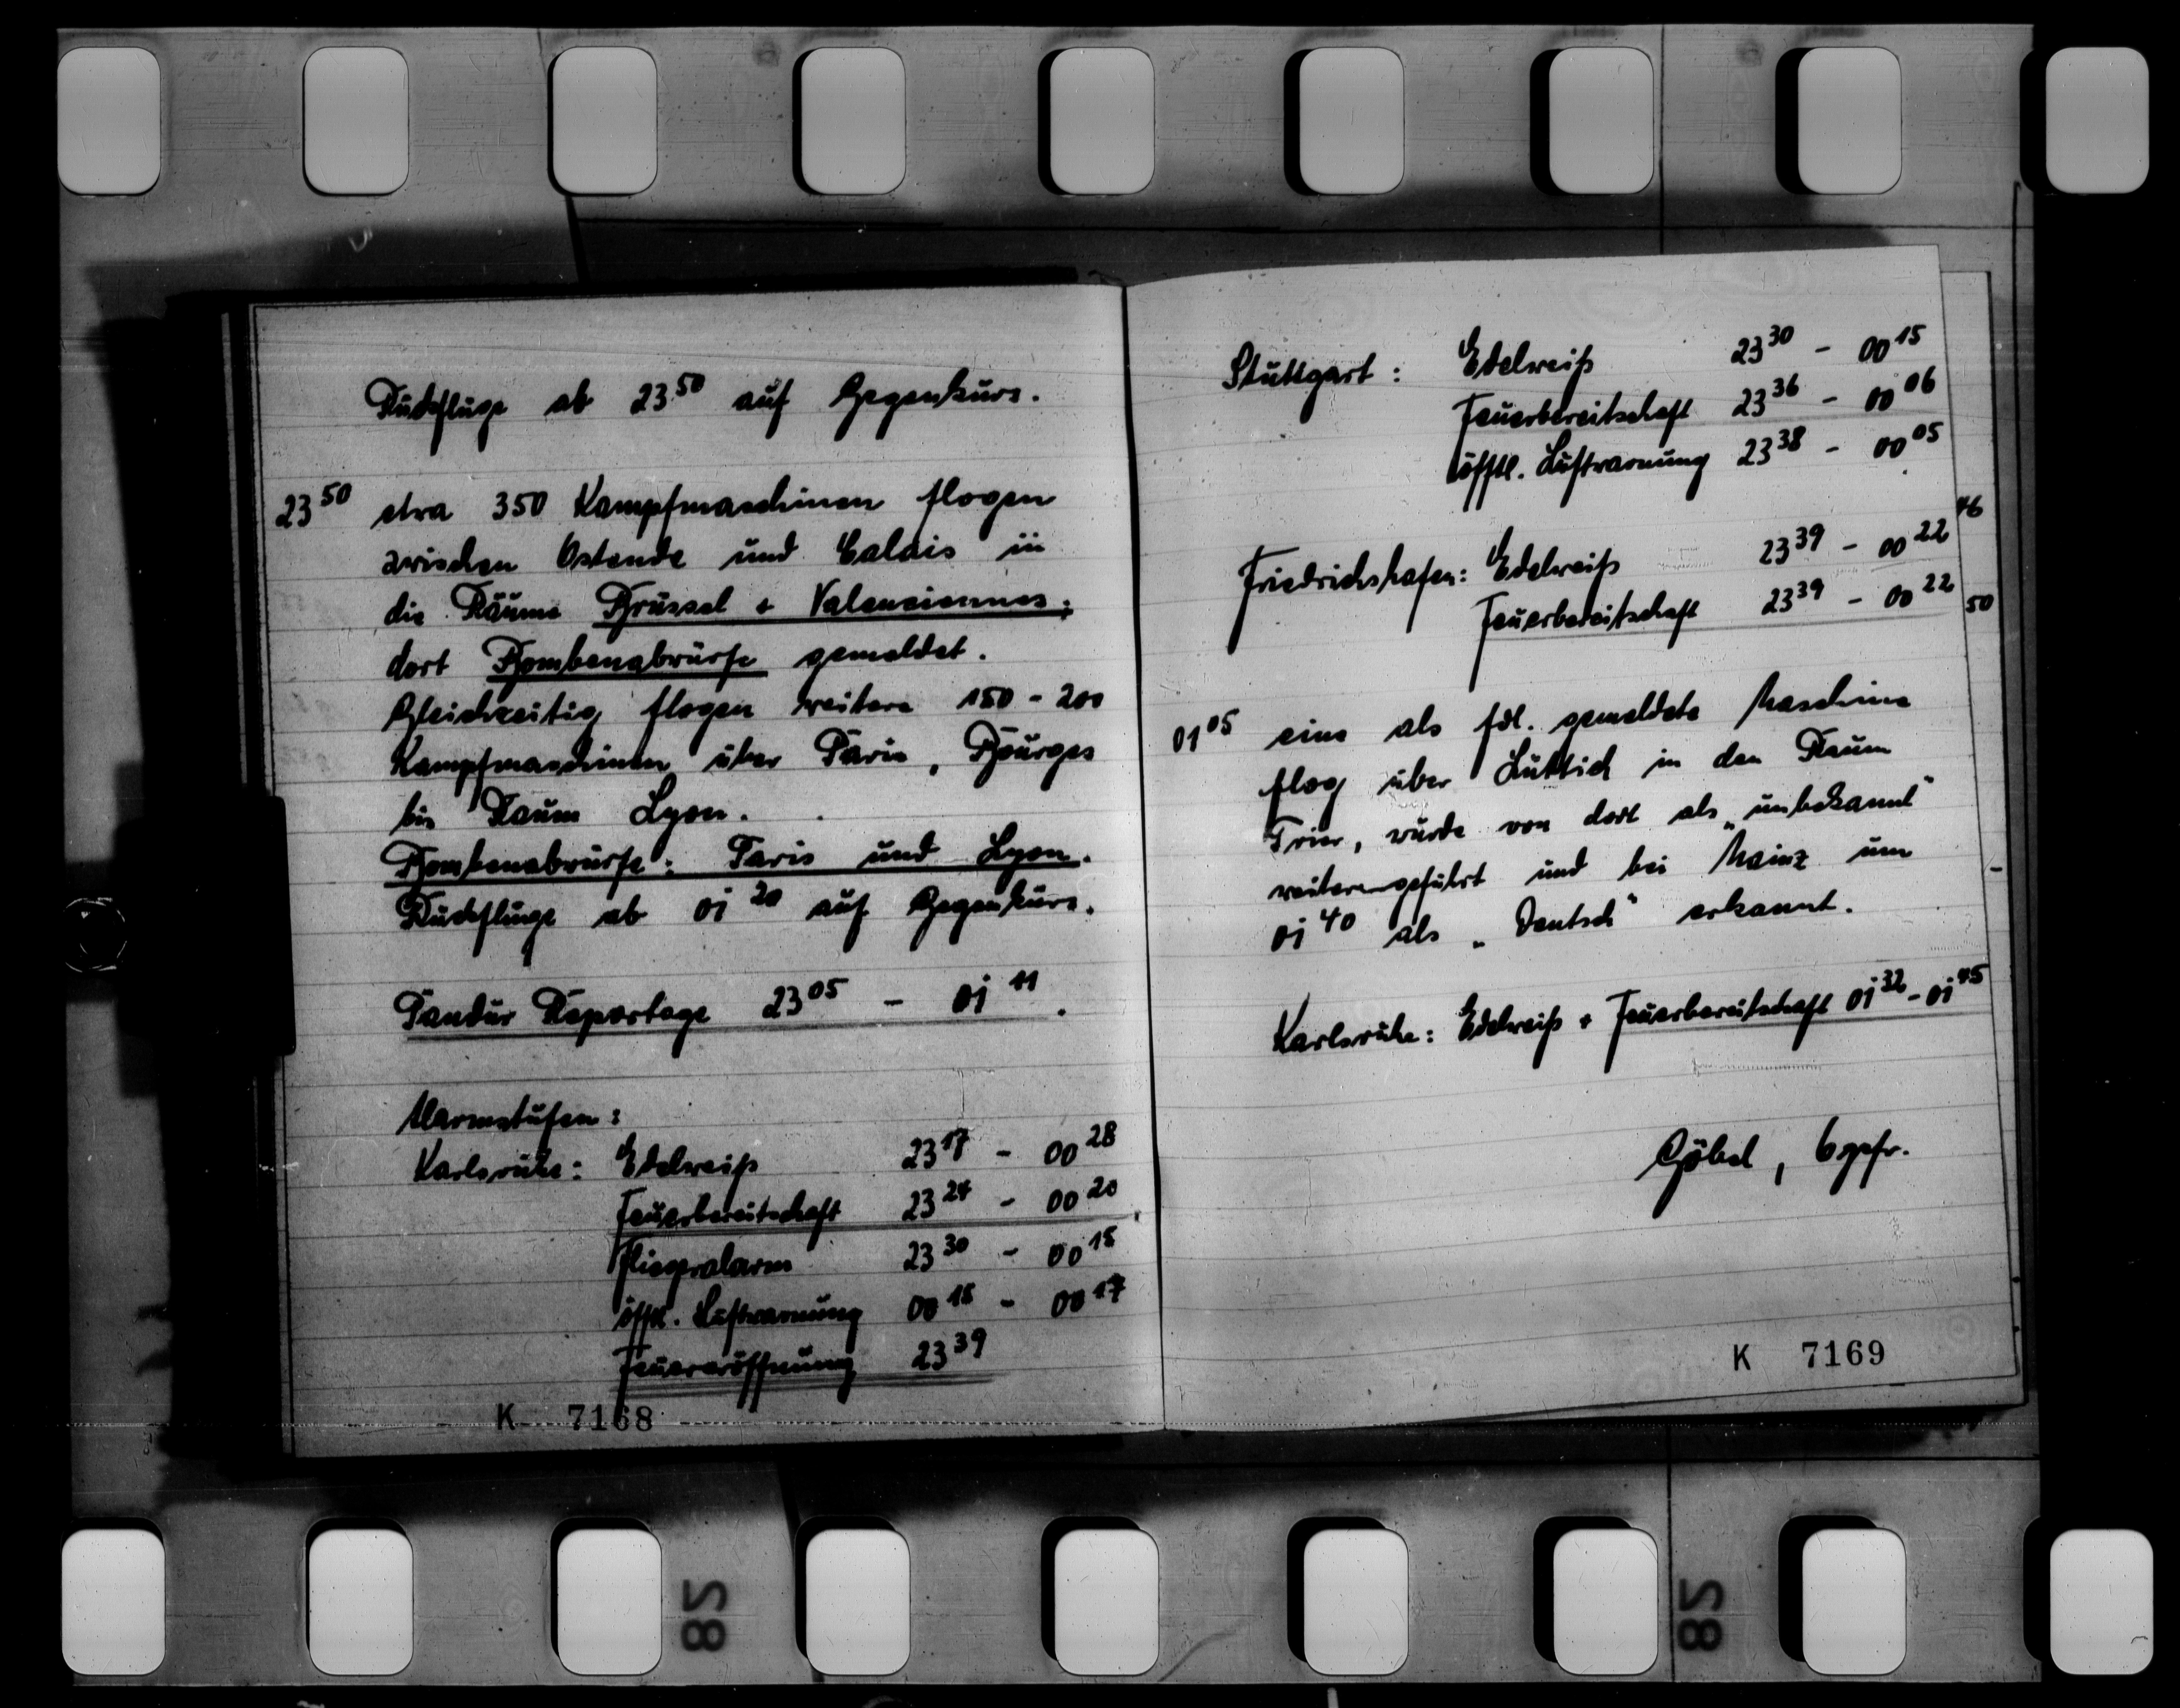 Rückflüge ab 23⁵⁰ auf Gegenkurs.
23⁵⁰ etwa 350 Kampfmaschinen flogen
zwischen Ostende und Calais in
die Räume Brüssel + Valenciennes;
dort Bombenabwürfe gemeldet.
Gleichzeitig flogen weitere 150 - 200
Kampfmaschinen über Paris, Bourges
bis Raum Lyon.
Bombenabwürfe: Paris und Lyon.
Rückflüge ab 01²⁰ auf Gegenkurs.
Pandur Reportage 23⁰⁵ - 01¹¹.
Alarmstufen:
Karlsruhe: Edelweiß 23¹⁷ - 00²⁸
Feuerbereitschaft 23²⁴ - 00²⁰
Fliegeralarm 23³⁰ - 00¹⁵
öfftl. Luftwarnung 00¹⁵ - 00¹⁷
Feuereröffnung 23³⁹
K 7168
Stuttgart: Edelweiß 23³⁰ - 00¹⁵
Feuerbereitschaft 23³⁶ - 00⁰⁶
öfftl. Luftwarnung 23³⁸ - 00⁰⁵
Friedrichshafen: Edelweiß 23³⁹ - 00²²
Feuerbereitschaft 23³⁹ - 00²²
46
50
01⁰⁵ eine als fdl. gemeldete Maschine
flog über Lüttich in den Raum
Trier, wurde von dort als „unbekannt“
weitergeführt und bei Mainz um
01⁴⁰ als „Deutsch“ erkannt.
Karlsruhe: Edelweiß + Feuerbereitschaft 01³² - 01⁴⁵
Göbel, Ogefr.
K 7169
28
28